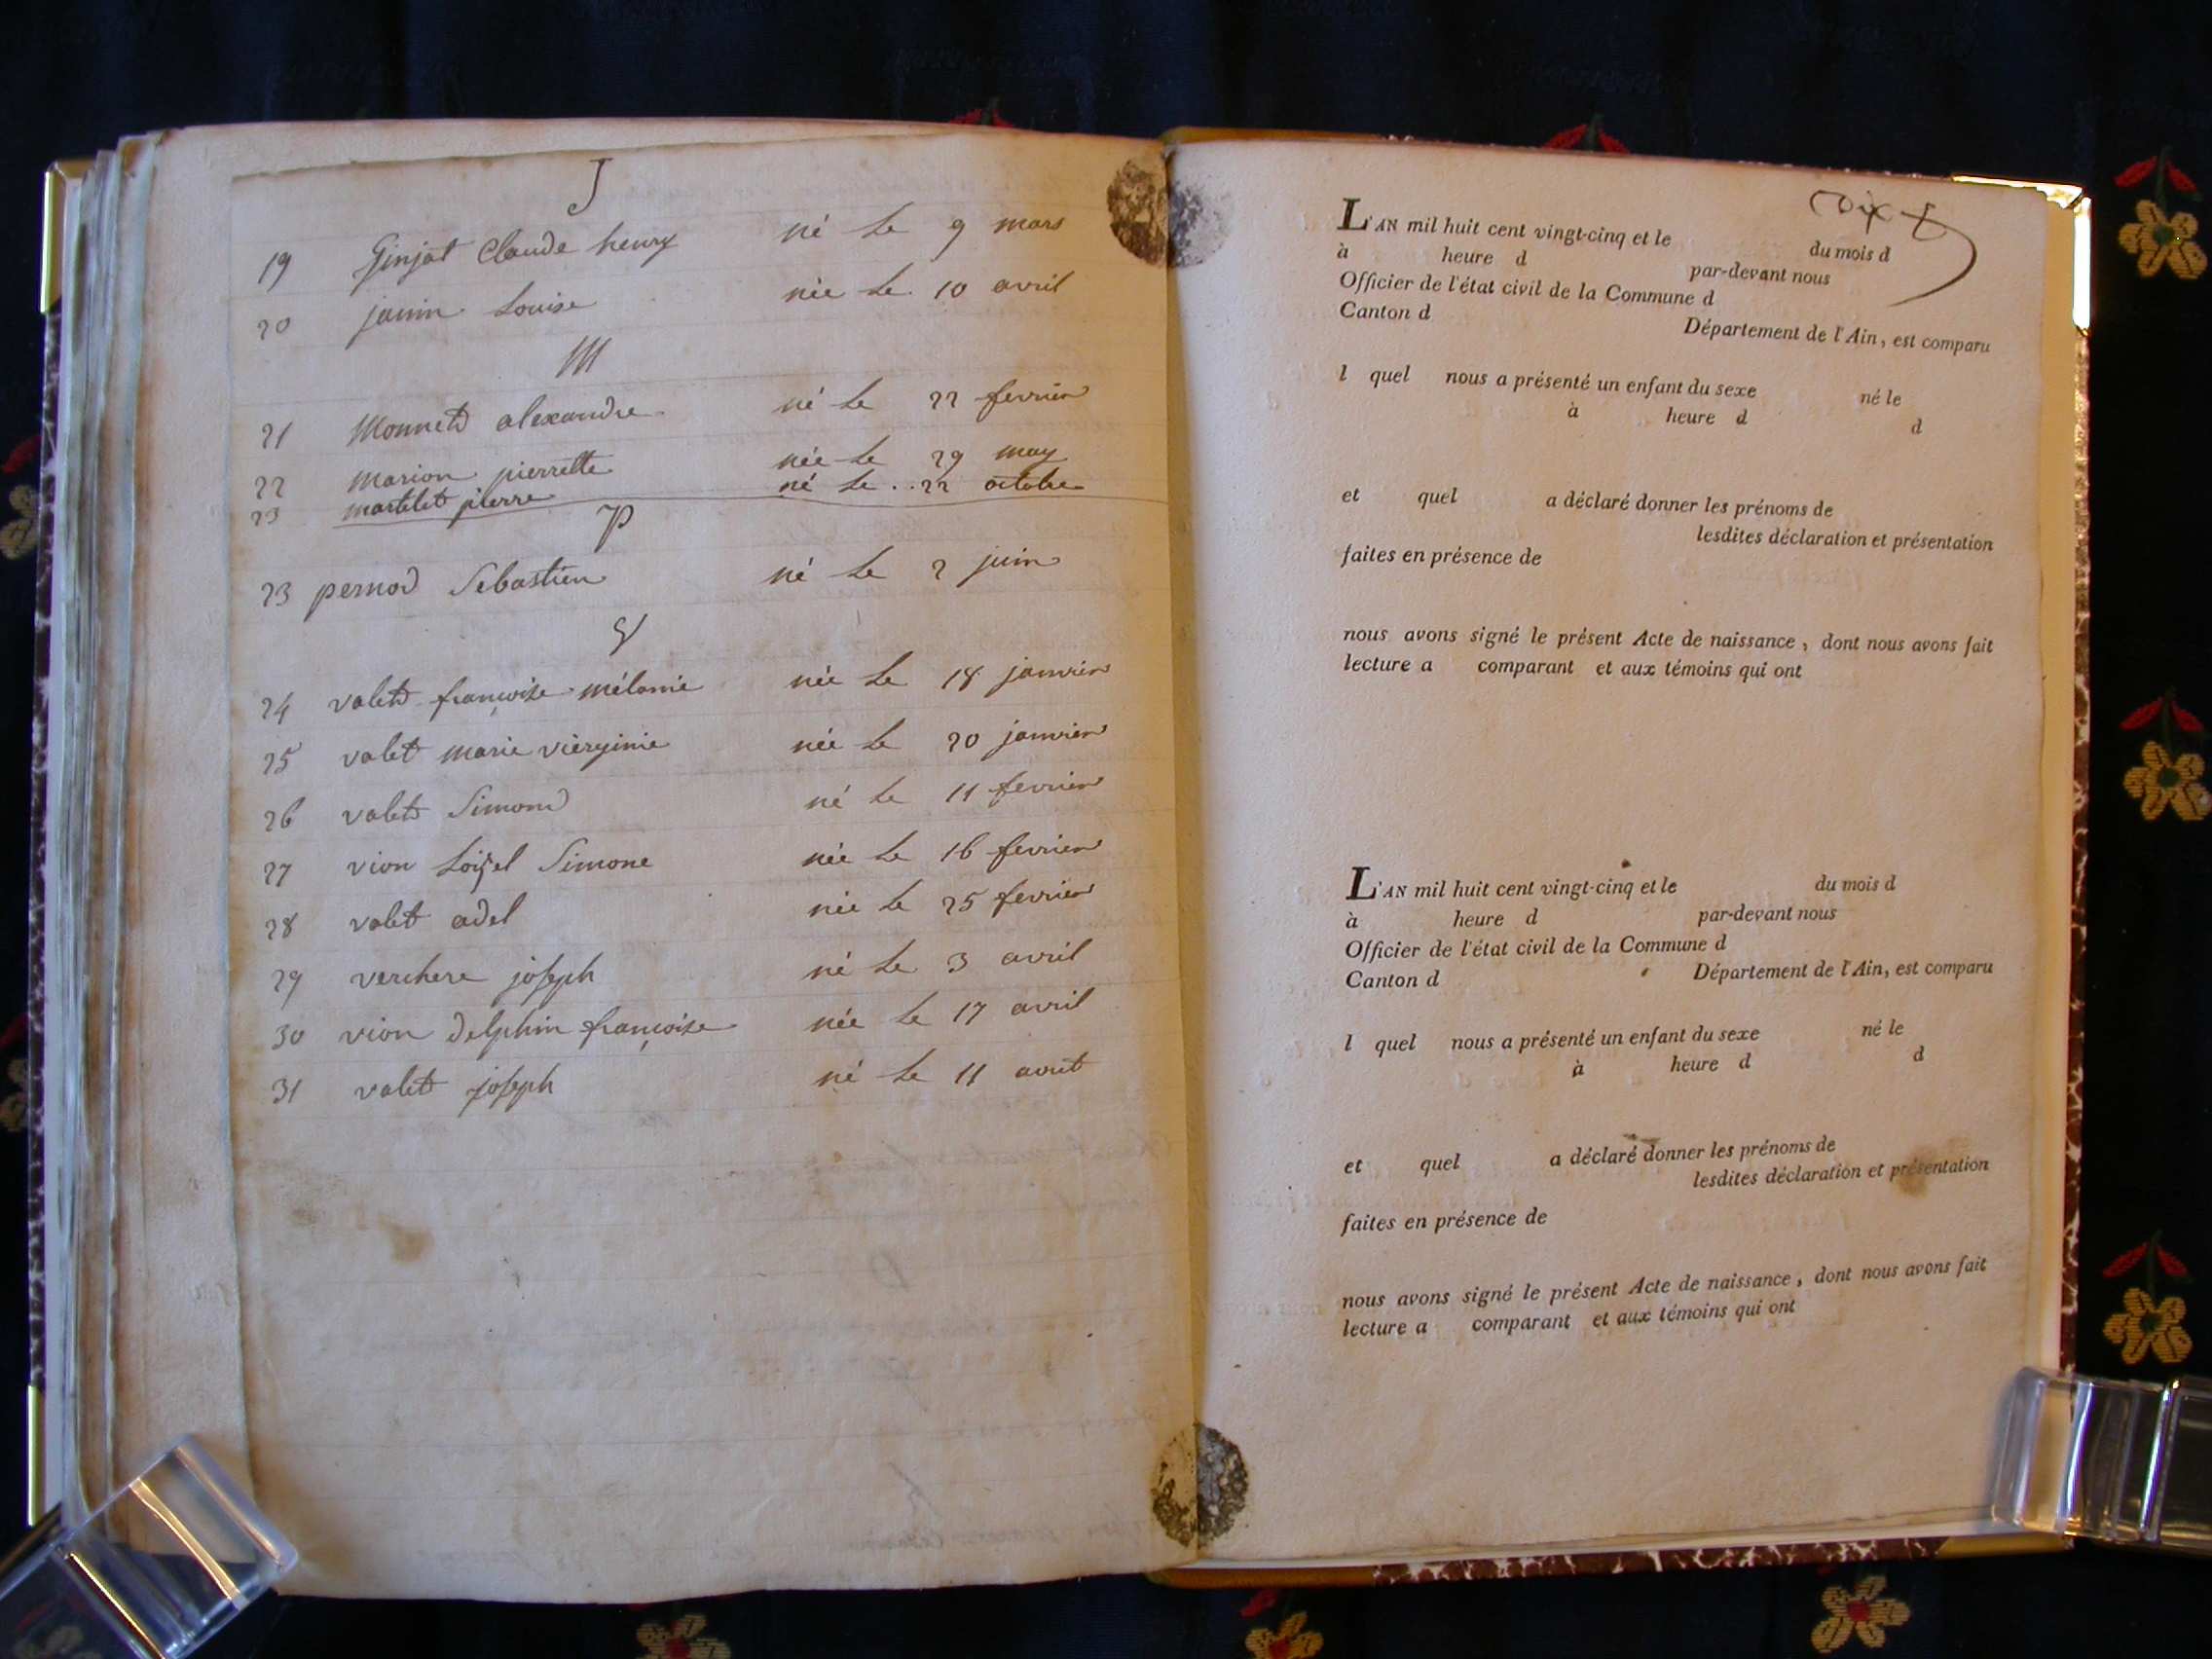 J
19 Ginjat Claude henry né le 9 mars
20 janin Louise née le 10 avril
M
21 Monnet alexandre né le 22 fevrier
22 marion pierrette née le 29 may
23 martelet pierre né le .. 22 octobre
P
23 pernod Sebastien né le 2 juin
V
24 valet françoise mélanie née le 18 janvier
25 valet marie vierginie née le 20 janvier
26 valet Simond né le 11 fevrier
27 vion Loisel Simone née le 16 fevrier
28 valet adel née le 25 fevrier
29 verchere joseph né le 3 avril
30 vion delphin françoise née le 17 avril
31 valet joseph né le 11 aout
L'AN mil huit cent vingt-cinq et le du mois d
à heure d par-devant nous
Officier de l'état civil de la Commune d
Canton d Département de l'Ain, est comparu
l quel nous a présenté un enfant du sexe né le
à heure d d
et quel a déclaré donner les prénoms de
lesdites déclaration et présentation
faites en présence de
nous avons signé le présent Acte de naissance, dont nous avons fait
lecture a comparant et aux témoins qui ont
L'AN mil huit cent vingt-cinq et le du mois d
à heure d par-devant nous
Officier de l'état civil de la Commune d
Canton d Département de l'Ain, est comparu
l quel nous a présenté un enfant du sexe né le
à heure d d
et quel a déclaré donner les prénoms de
lesdites déclaration et présentation
faites en présence de
nous avons signé le présent Acte de naissance, dont nous avons fait
lecture a comparant et aux témoins qui ont